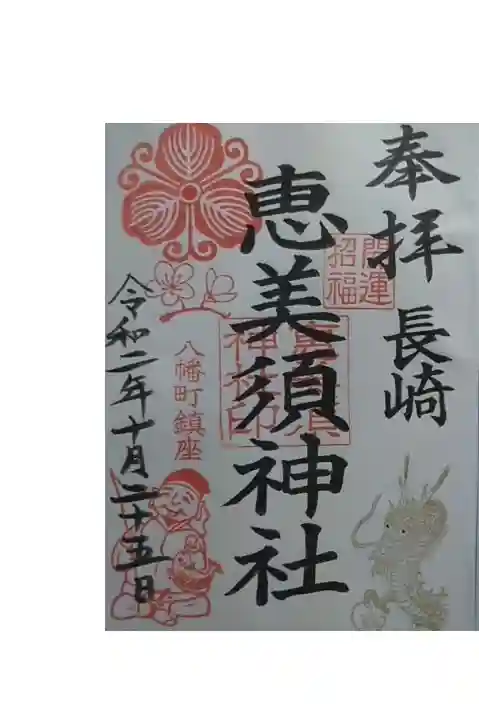 奉拝 長崎
開運
招福
恵美須神社
恵美須
神社印
八幡町鎮座
令和二年十月二十五日